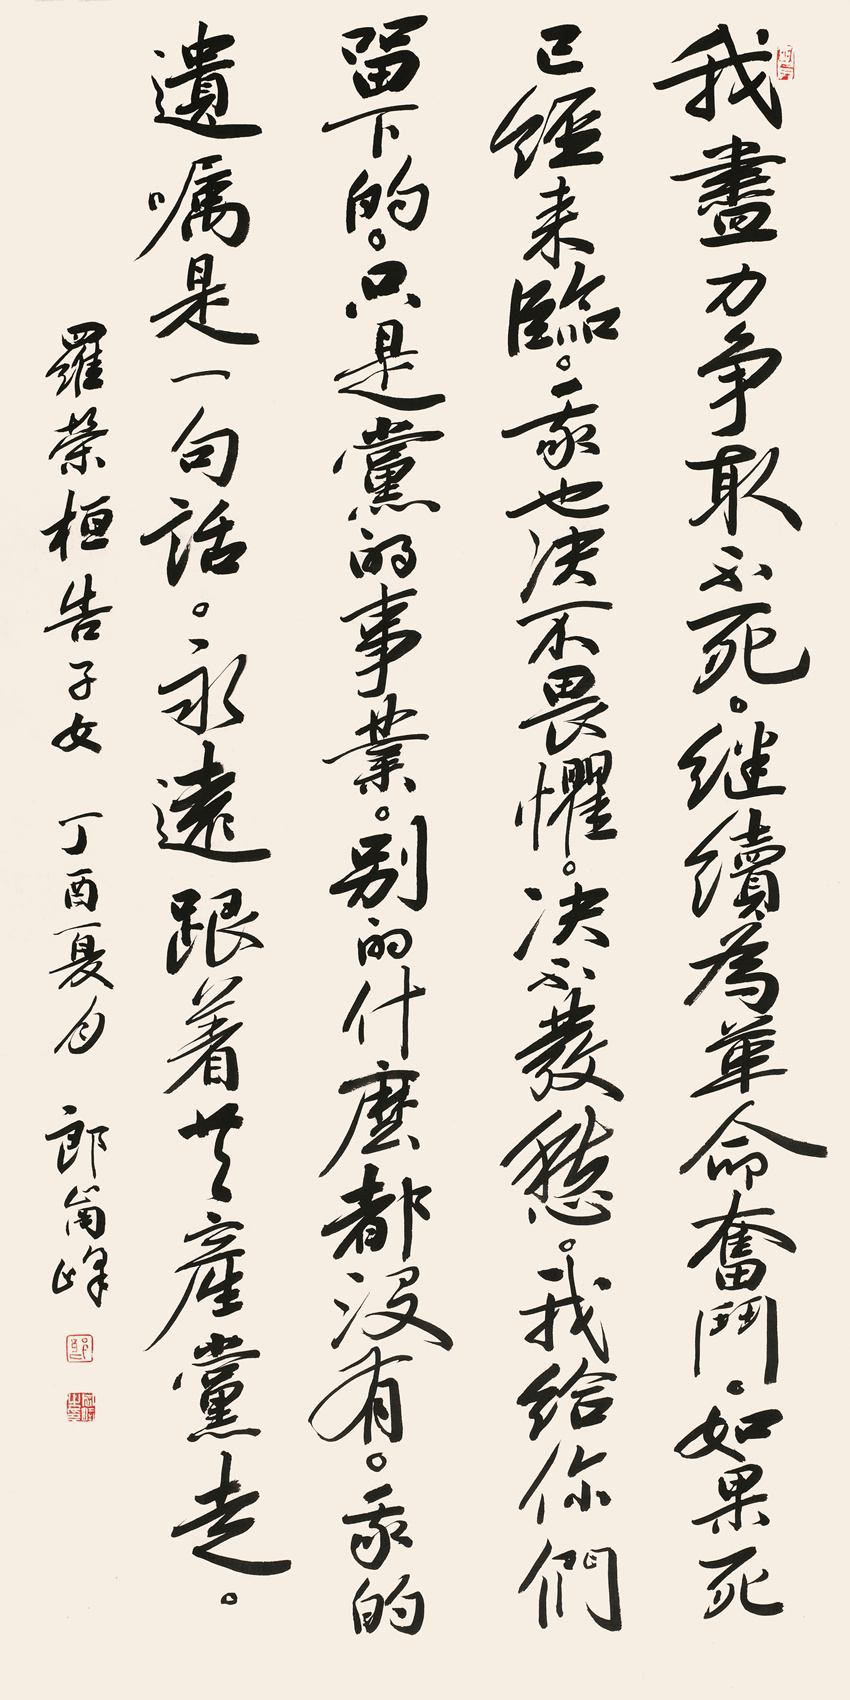 我盡力争取不死。继續為革命奮鬥。如果死
已經来臨。我也决不畏懼。决不發愁。我給你們
留下的。只是黨的事業。别的什麼都没有。我的
遺嘱是一句話。永遠跟着共產黨走。
羅荣桓告子女 丁酉夏月 郎崗峰